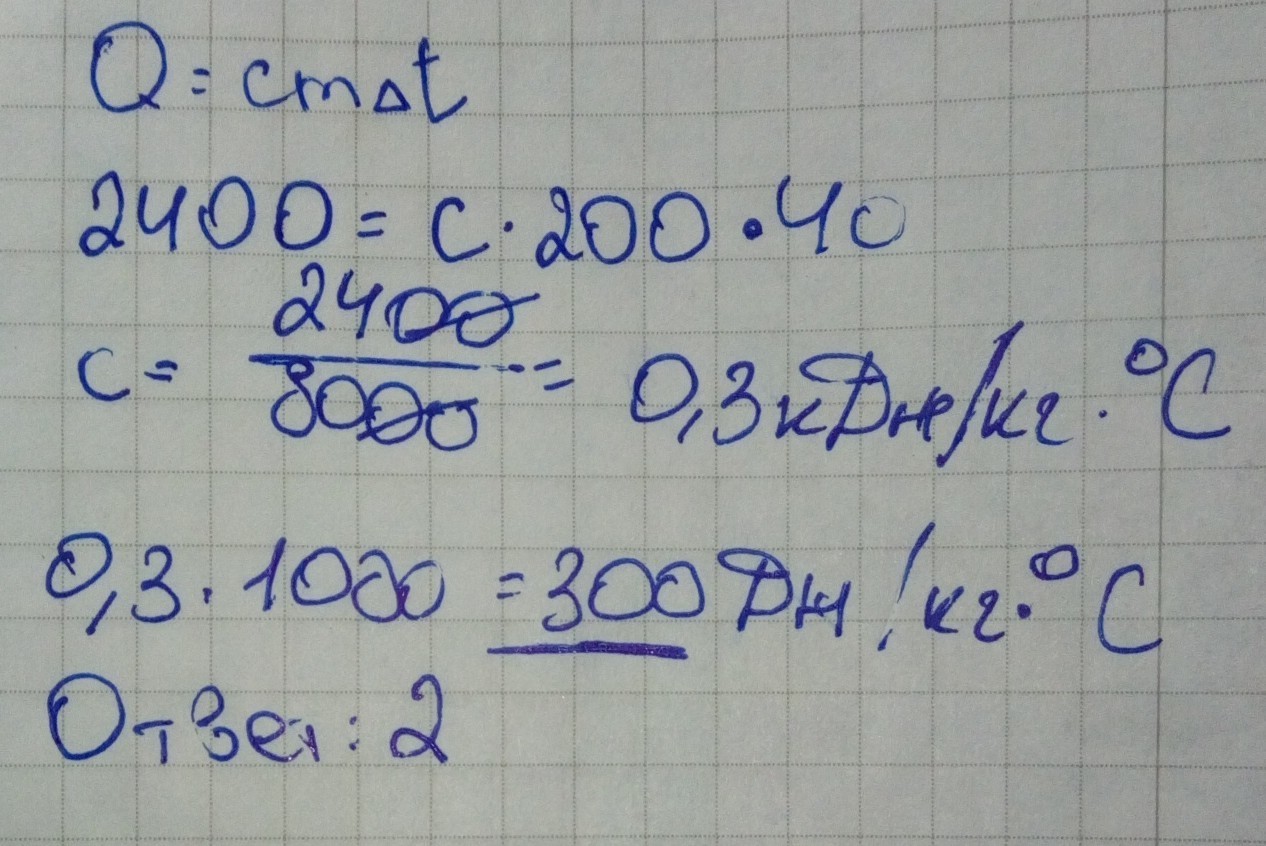 Q = cmΔt
2400 = c · 200 · 40
c = 2400/8000 = 0,3 кДж/кг · °C
0,3 · 1000 = 300 Дж/кг · °C
Ответ: 2